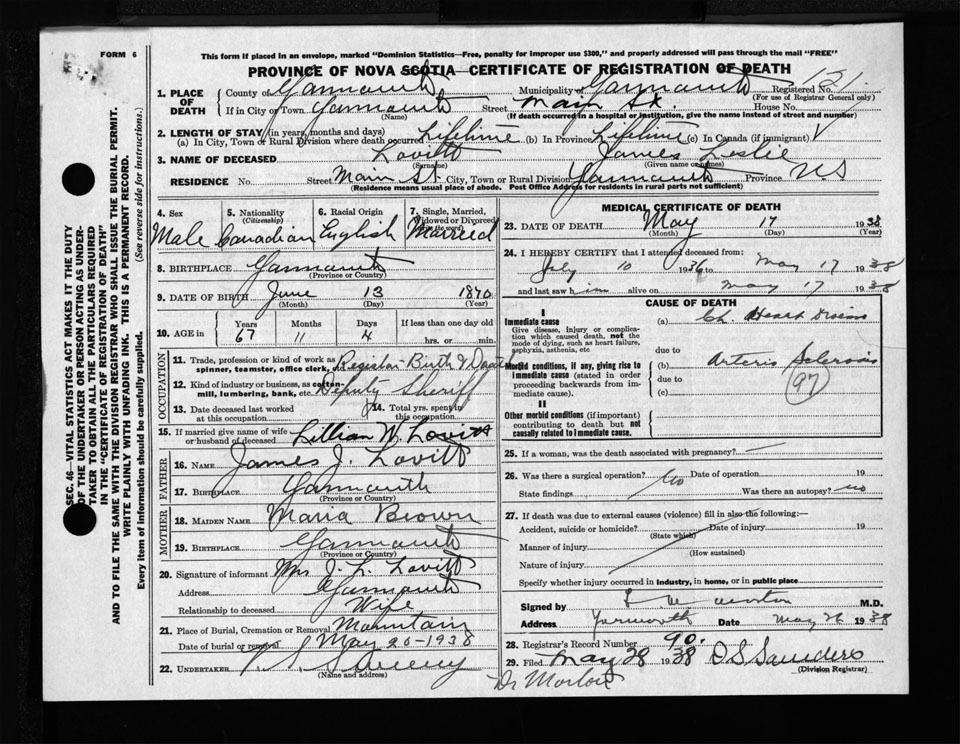 FORM 6
This form if placed in an envelope, marked "Dominion Statistics—Free, penalty for improper use $300," and properly addressed will pass through the mail "FREE"
PROVINCE OF NOVA SCOTIA—CERTIFICATE OF REGISTRATION OF DEATH
SEC. 46—VITAL STATISTICS ACT MAKES IT THE DUTY
OF THE UNDERTAKER OR PERSON ACTING AS UNDER-
TAKER TO OBTAIN ALL THE PARTICULARS REQUIRED
IN THE "CERTIFICATE OF REGISTRATION OF DEATH"
AND TO FILE THE SAME WITH THE DIVISION REGISTRAR WHO SHALL ISSUE THE BURIAL PERMIT.
WRITE PLAINLY WITH UNFADING INK. THIS IS A PERMANENT RECORD.
Every item of information should be carefully supplied. (See reverse side for instructions.)
1. PLACE OF DEATH County of Yarmouth Municipality of Yarmouth Registered No. 121.
(For use of Registrar General only)
If in City or Town Yarmouth Street Main St. House No.
(Name) (If death occurred in a hospital or institution, give the name instead of street and number)
2. LENGTH OF STAY (in years, months and days)
(a) In City, Town or Rural Division where death occurred Lifetime (b) In Province Lifetime (c) In Canada (if immigrant)
3. NAME OF DECEASED Lovitt James Leslie
(Surname) (Given name or names)
RESIDENCE No. Street Main St. City, Town or Rural Division Yarmouth Province N.S
(Residence means usual place of abode. Post Office Address for residents in rural parts not sufficient)
4. Sex Male
5. Nationality (Citizenship) Canadian
6. Racial Origin English
7. Single, Married, Widowed or Divorced (Write the word) Married
8. BIRTHPLACE Yarmouth
(Province or Country)
9. DATE OF BIRTH June 13 1870
(Month) (Day) (Year)
10. AGE in Years Months Days If less than one day old
67 11 4 hrs. or min.
OCCUPATION
11. Trade, profession or kind of work as spinner, teamster, office clerk, etc. Registrar Birth & Death
12. Kind of industry or business, as cotton-mill, lumbering, bank, etc. Deputy Sheriff
13. Date deceased last worked at this occupation
14. Total yrs. spent in this occupation
15. If married give name of wife or husband of deceased Lillian W. Lovitt
FATHER
16. NAME James J. Lovitt
17. BIRTHPLACE Yarmouth
(Province or Country)
MOTHER
18. MAIDEN NAME Maria Brown
19. BIRTHPLACE Yarmouth
(Province or Country)
20. Signature of informant Mrs J. L. Lovitt
Address Yarmouth
Relationship to deceased Wife
21. Place of Burial, Cremation or Removal Mountain
Date of burial or removal May 20-1938
22. UNDERTAKER Sweeny
(Name and address)
MEDICAL CERTIFICATE OF DEATH
23. DATE OF DEATH May 17 1938
(Month) (Day) (Year)
24. I HEREBY CERTIFY that I attended deceased from:
July 10 1936 to May 17 1938
and last saw him alive on May 17 1938
CAUSE OF DEATH
I
Immediate cause (a) Ch. Heart Disease
Give disease, injury or complication which caused death, not the mode of dying, such as heart failure, asphyxia, asthenia, etc due to
Morbid conditions, if any, giving rise to immediate cause (stated in order proceeding backwards from immediate cause). (b) Arterio Sclerosis
due to (97)
(c)
II
Other morbid conditions (if important) contributing to death but not causally related to immediate cause.
25. If a woman, was the death associated with pregnancy?
26. Was there a surgical operation? No Date of operation 19
State findings Was there an autopsy? No
27. If death was due to external causes (violence) fill in also the following:—
Accident, suicide or homicide? Date of injury 19
(State which)
Manner of injury
(How sustained)
Nature of injury
Specify whether injury occurred in industry, in home, or in public place
Signed by M.D.
Address Yarmouth Date May 26 1938
28. Registrar's Record Number 90.
29. Filed May 28 1938 D S Saunders
(Division Registrar)
Dr Morton